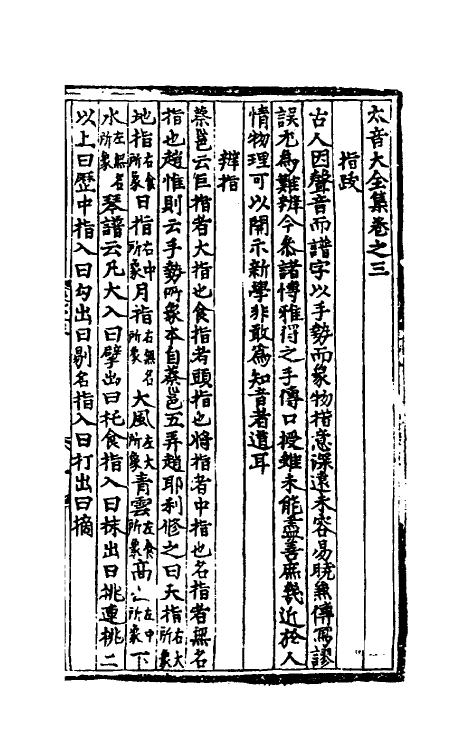 太音大全集卷之三
指践
古人因聲音而譜字以手勢而象物楷意深遠未容易曉無傳寫謬
誤尤為難辨今叅諸博雅得之手傳口授雖未能盡善庶幾近於人
情物理可以開示新學非敢為知音者道耳
辯指
蔡邕云巨指者大指也食指者頭指也將指者中指也名指者無名
指也趙惟則云手勢所象本自蔡邕五弄趙耶利修之曰天指右大所象
地指右食所象日指右中所象月指右無名所象大風左大所象青雲左食所象高山左中所象下
水左無名所象琴譜云凡大入曰擘出曰托食指入曰抹出曰挑連挑二
以上曰歷中指入曰勾出曰剔名指入曰打出曰摘